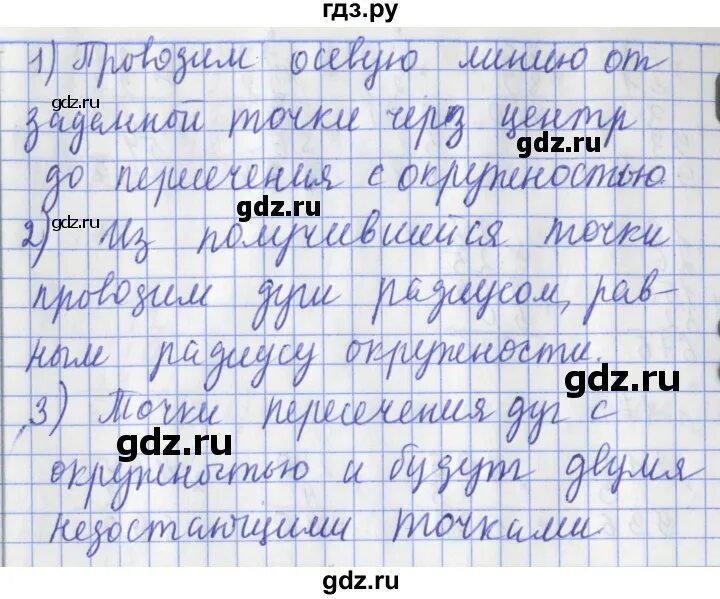 гдз.ру
1) Проводим осевую линию от
gdz.ru
заданной точки через центр
gdz.ru
до пересечения с окружностью
gdz.ru
gdz.ru
2) Из получившейся точки
проводим дуги радиусом, рав-
ным радиусу окружности.
gdz.ru
3) Точки пересечения дуг с
gdz.ru
окружностью и будут двумя
недостающими точками
gdz.ru